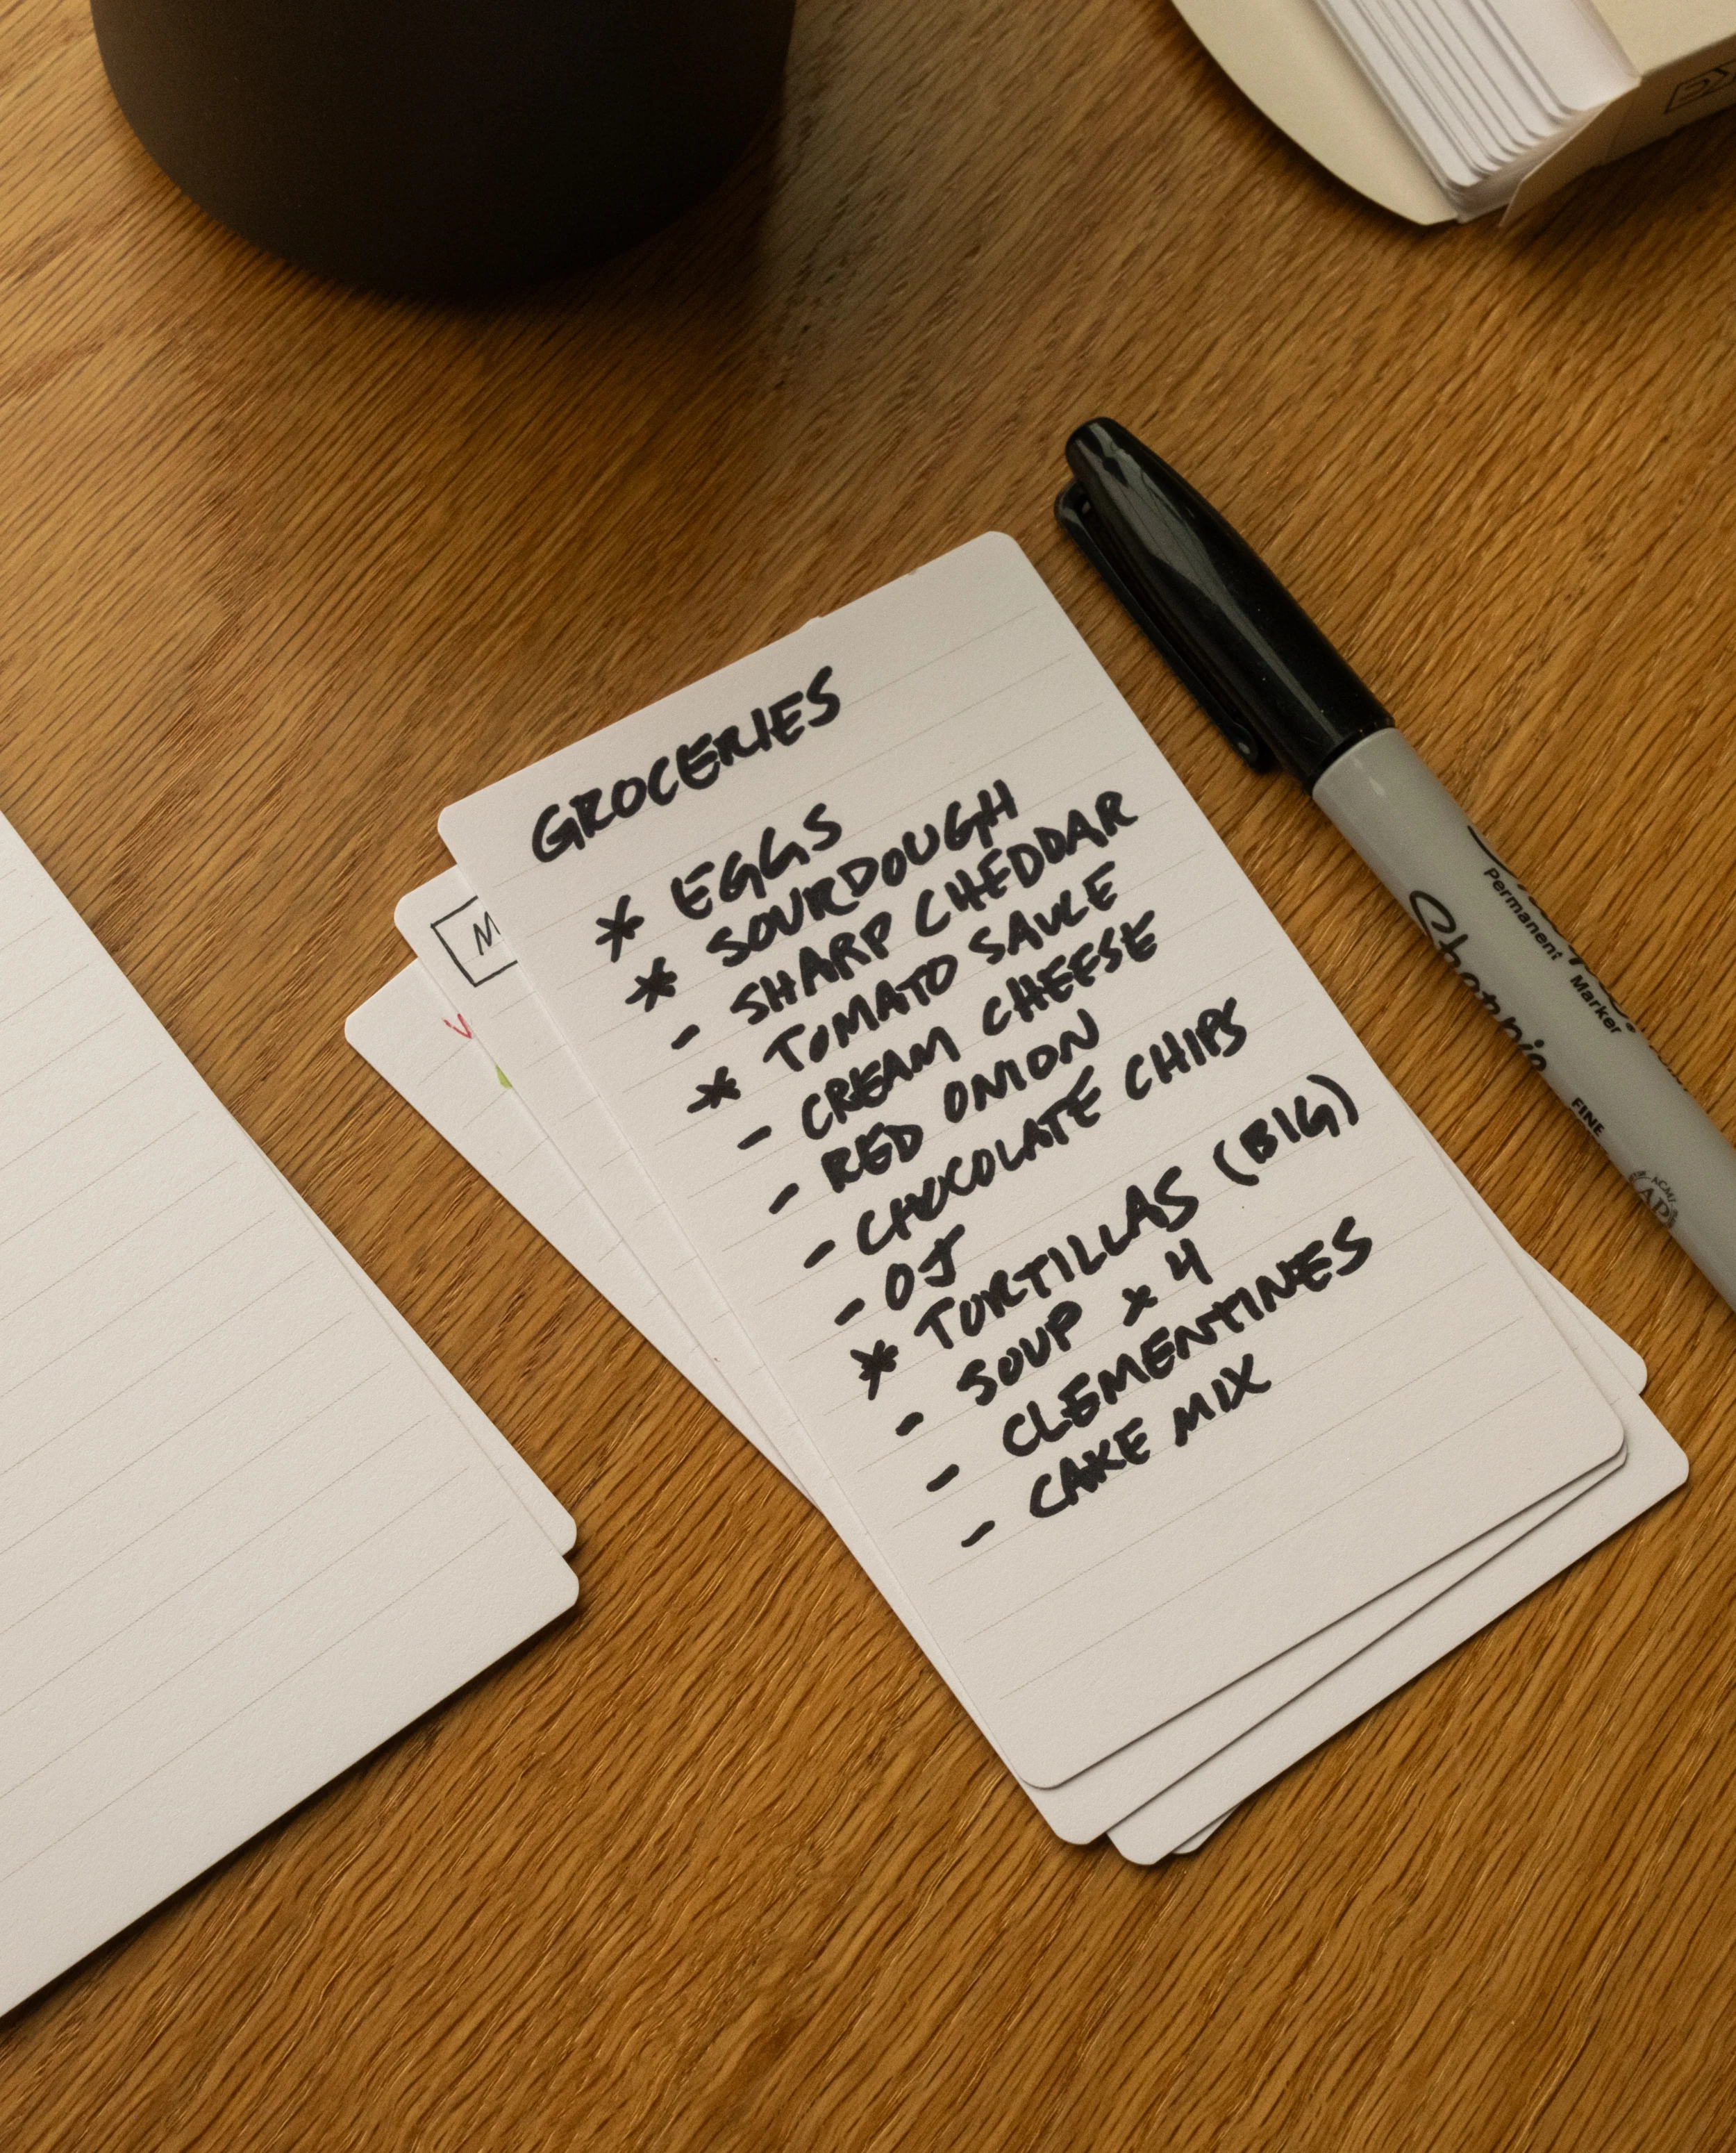 GROCERIES
* EGGS
* SOURDOUGH
- SHARP CHEDDAR
* TOMATO SAUCE
- CREAM CHEESE
- RED ONION
- CHOCOLATE CHIPS
- OJ
* TORTILLAS (BIG)
- SOUP x 4
- CLEMENTINES
- CAKE MIX
Sharpie
Permanent Marker
FINE